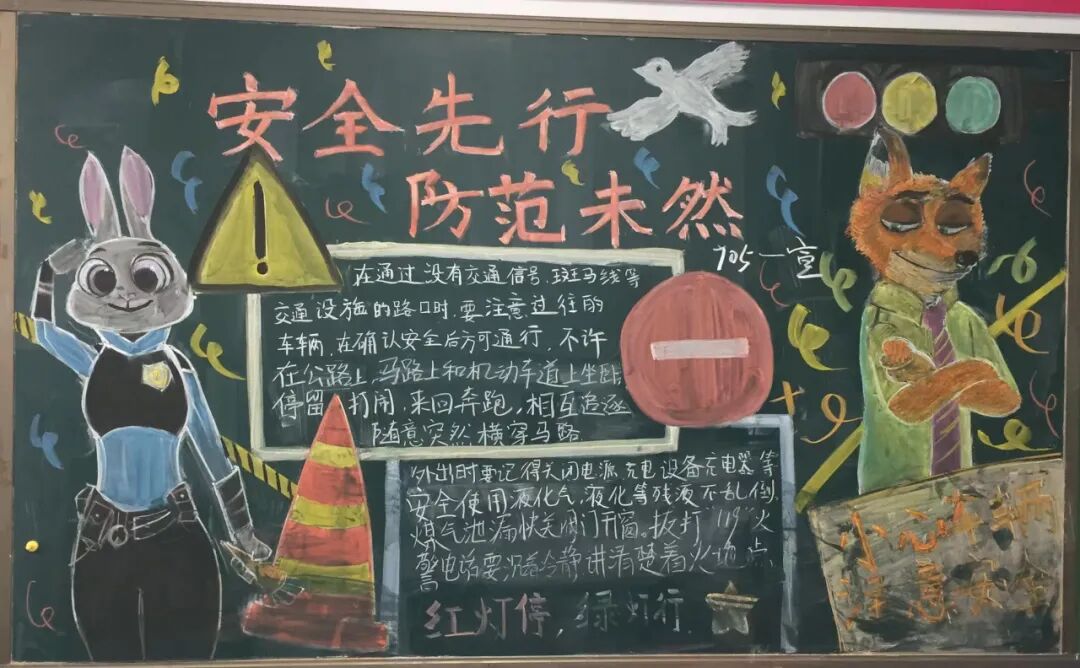 安全先行
防范未然
705一宣
在通过没有交通信号、斑马线等
交通设施的路口时，要注意过往的
车辆，在确认安全后方可通行，不许
在公路上，马路上和机动车道上坐卧
停留、打闹，来回奔跑，相互追逐
随意突然横穿马路
外出时要记得关闭电源，充电设备充电器等
安全使用液化气，液化等残液不乱倒，
煤气池漏快关阀门开窗。拔打"119"火
警电话要沉着冷静讲清楚着火地点
红灯停，绿灯行.
小心车辆
注意安全